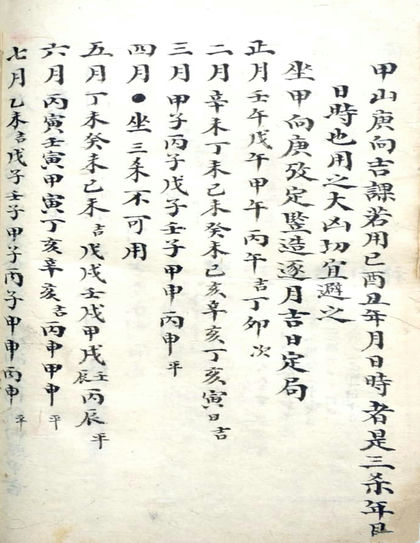 甲山庚向吉課若用巳酉丑年月日時者是三杀年月
日時也用之大凶切宜避之
坐甲向庚攷定竪造逐月吉日定局
正月壬午戊午甲午丙午吉丁卯次
二月辛未丁未己未癸未己亥辛亥丁亥寅日吉
三月甲子丙子戊子壬子甲申丙申平
四月●坐三杀不可用
五月丁未癸未己未吉戊戌壬戌甲戌壬辰丙辰平
六月丙寅壬寅甲寅丁亥辛亥吉丙申甲申平
七月乙未吉戊子壬子甲子丙子甲申丙申平